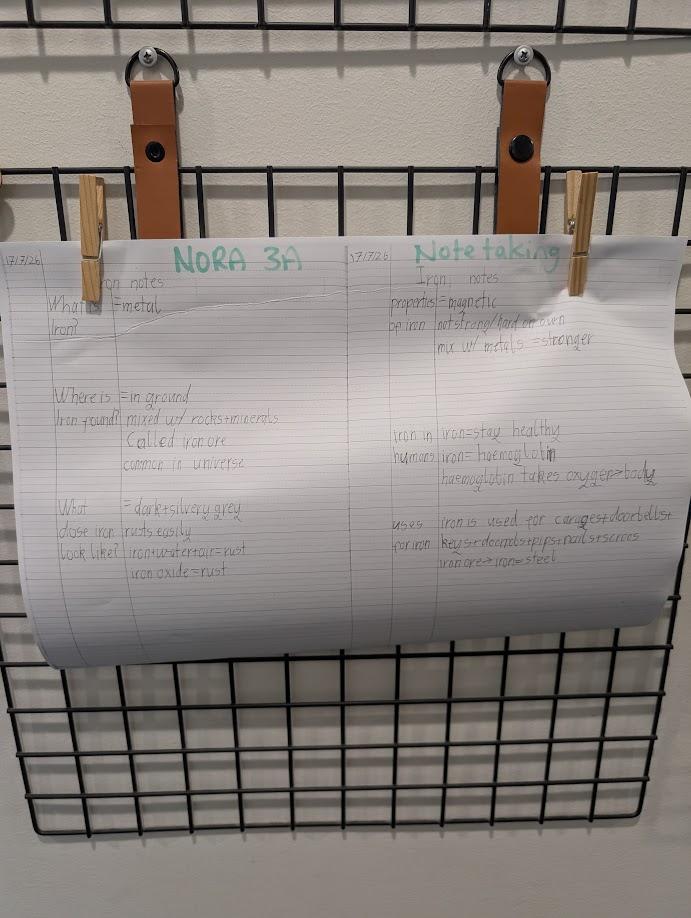 17/7/26
NORA 3A
Iron notes
What is =metal
Iron?
Where is =in ground
Iron found? mixed w/ rocks+minerals
Called iron ore
common in universe
What =dark+silvery grey
dose iron rusts easily
look like? iron+water+air=rust
iron oxide=rust
17/7/26
Note taking
Iron notes
properties =magnetic
of iron not strong/hard on own
mix w/ metals =stronger
iron in iron=stay healthy
humans iron=haemoglobin
haemoglobin takes oxygen>body
uses iron is used for +doorbells+
for iron keys+ +pips+nails+scroos
iron ore→iron=steel